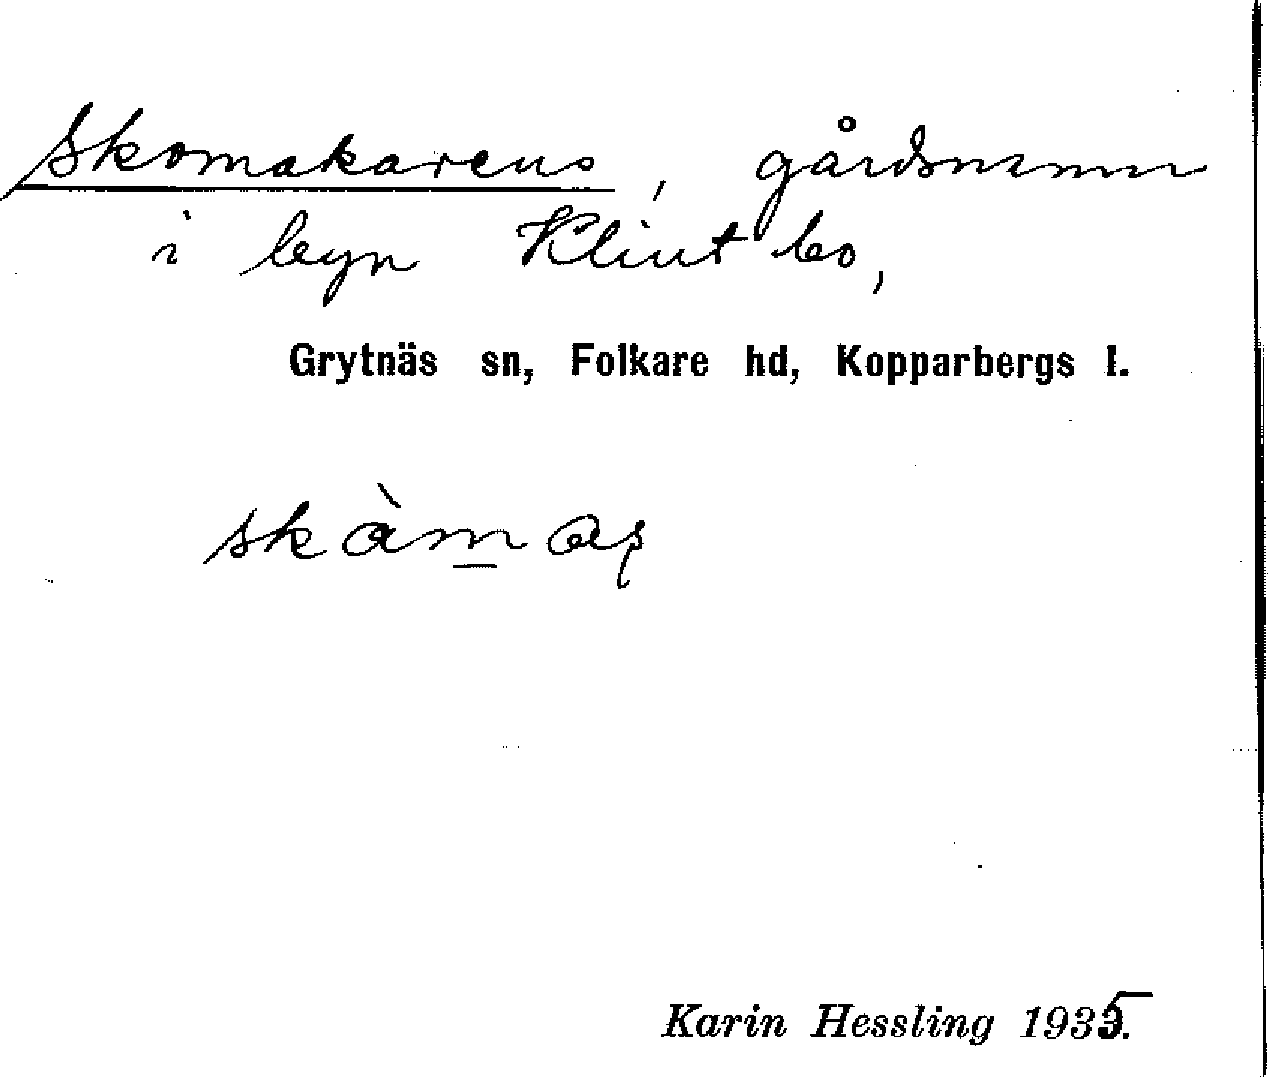 Skomakarens, gårdsnamn
i byn Klintbo,
Grytnäs sn, Folkare hd, Kopparbergs l.
Karin Hessling 1935.